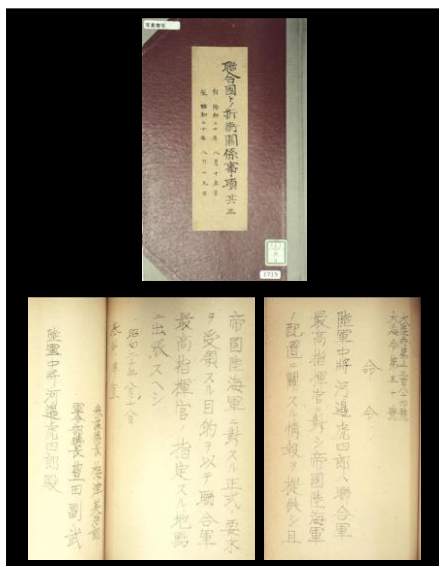 聯合國トノ折衝關係事項 其三
自 昭和二十年 八月十五日
至 昭和二十年 八月一九日
1719
命令
陸軍中將河邊虎四郎ハ聯合軍
最高指揮官ニ對シ帝國陸海軍
ノ配置ニ關スル情報ヲ提供シ且
帝國陸海軍ニ對スル正式ノ要求
ヲ受領スル目的ヲ以テ聯合軍
最高指揮官ノ指定スル地點
ニ出張スヘシ
參謀總長 梅津美治郎
軍令部總長 豊田副武
陸軍中將 河邊虎四郎殿